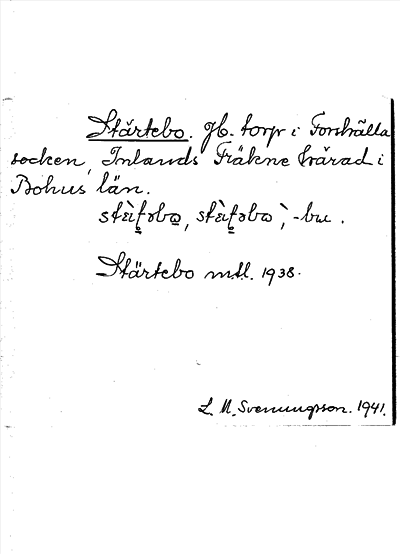 Stärtebo. gb. torp i Forshälla
socken, Inlands Fräkne härad i
Bohus län.
Stärtebo mtl. 1938.
L. M. Svenungsson. 1941.